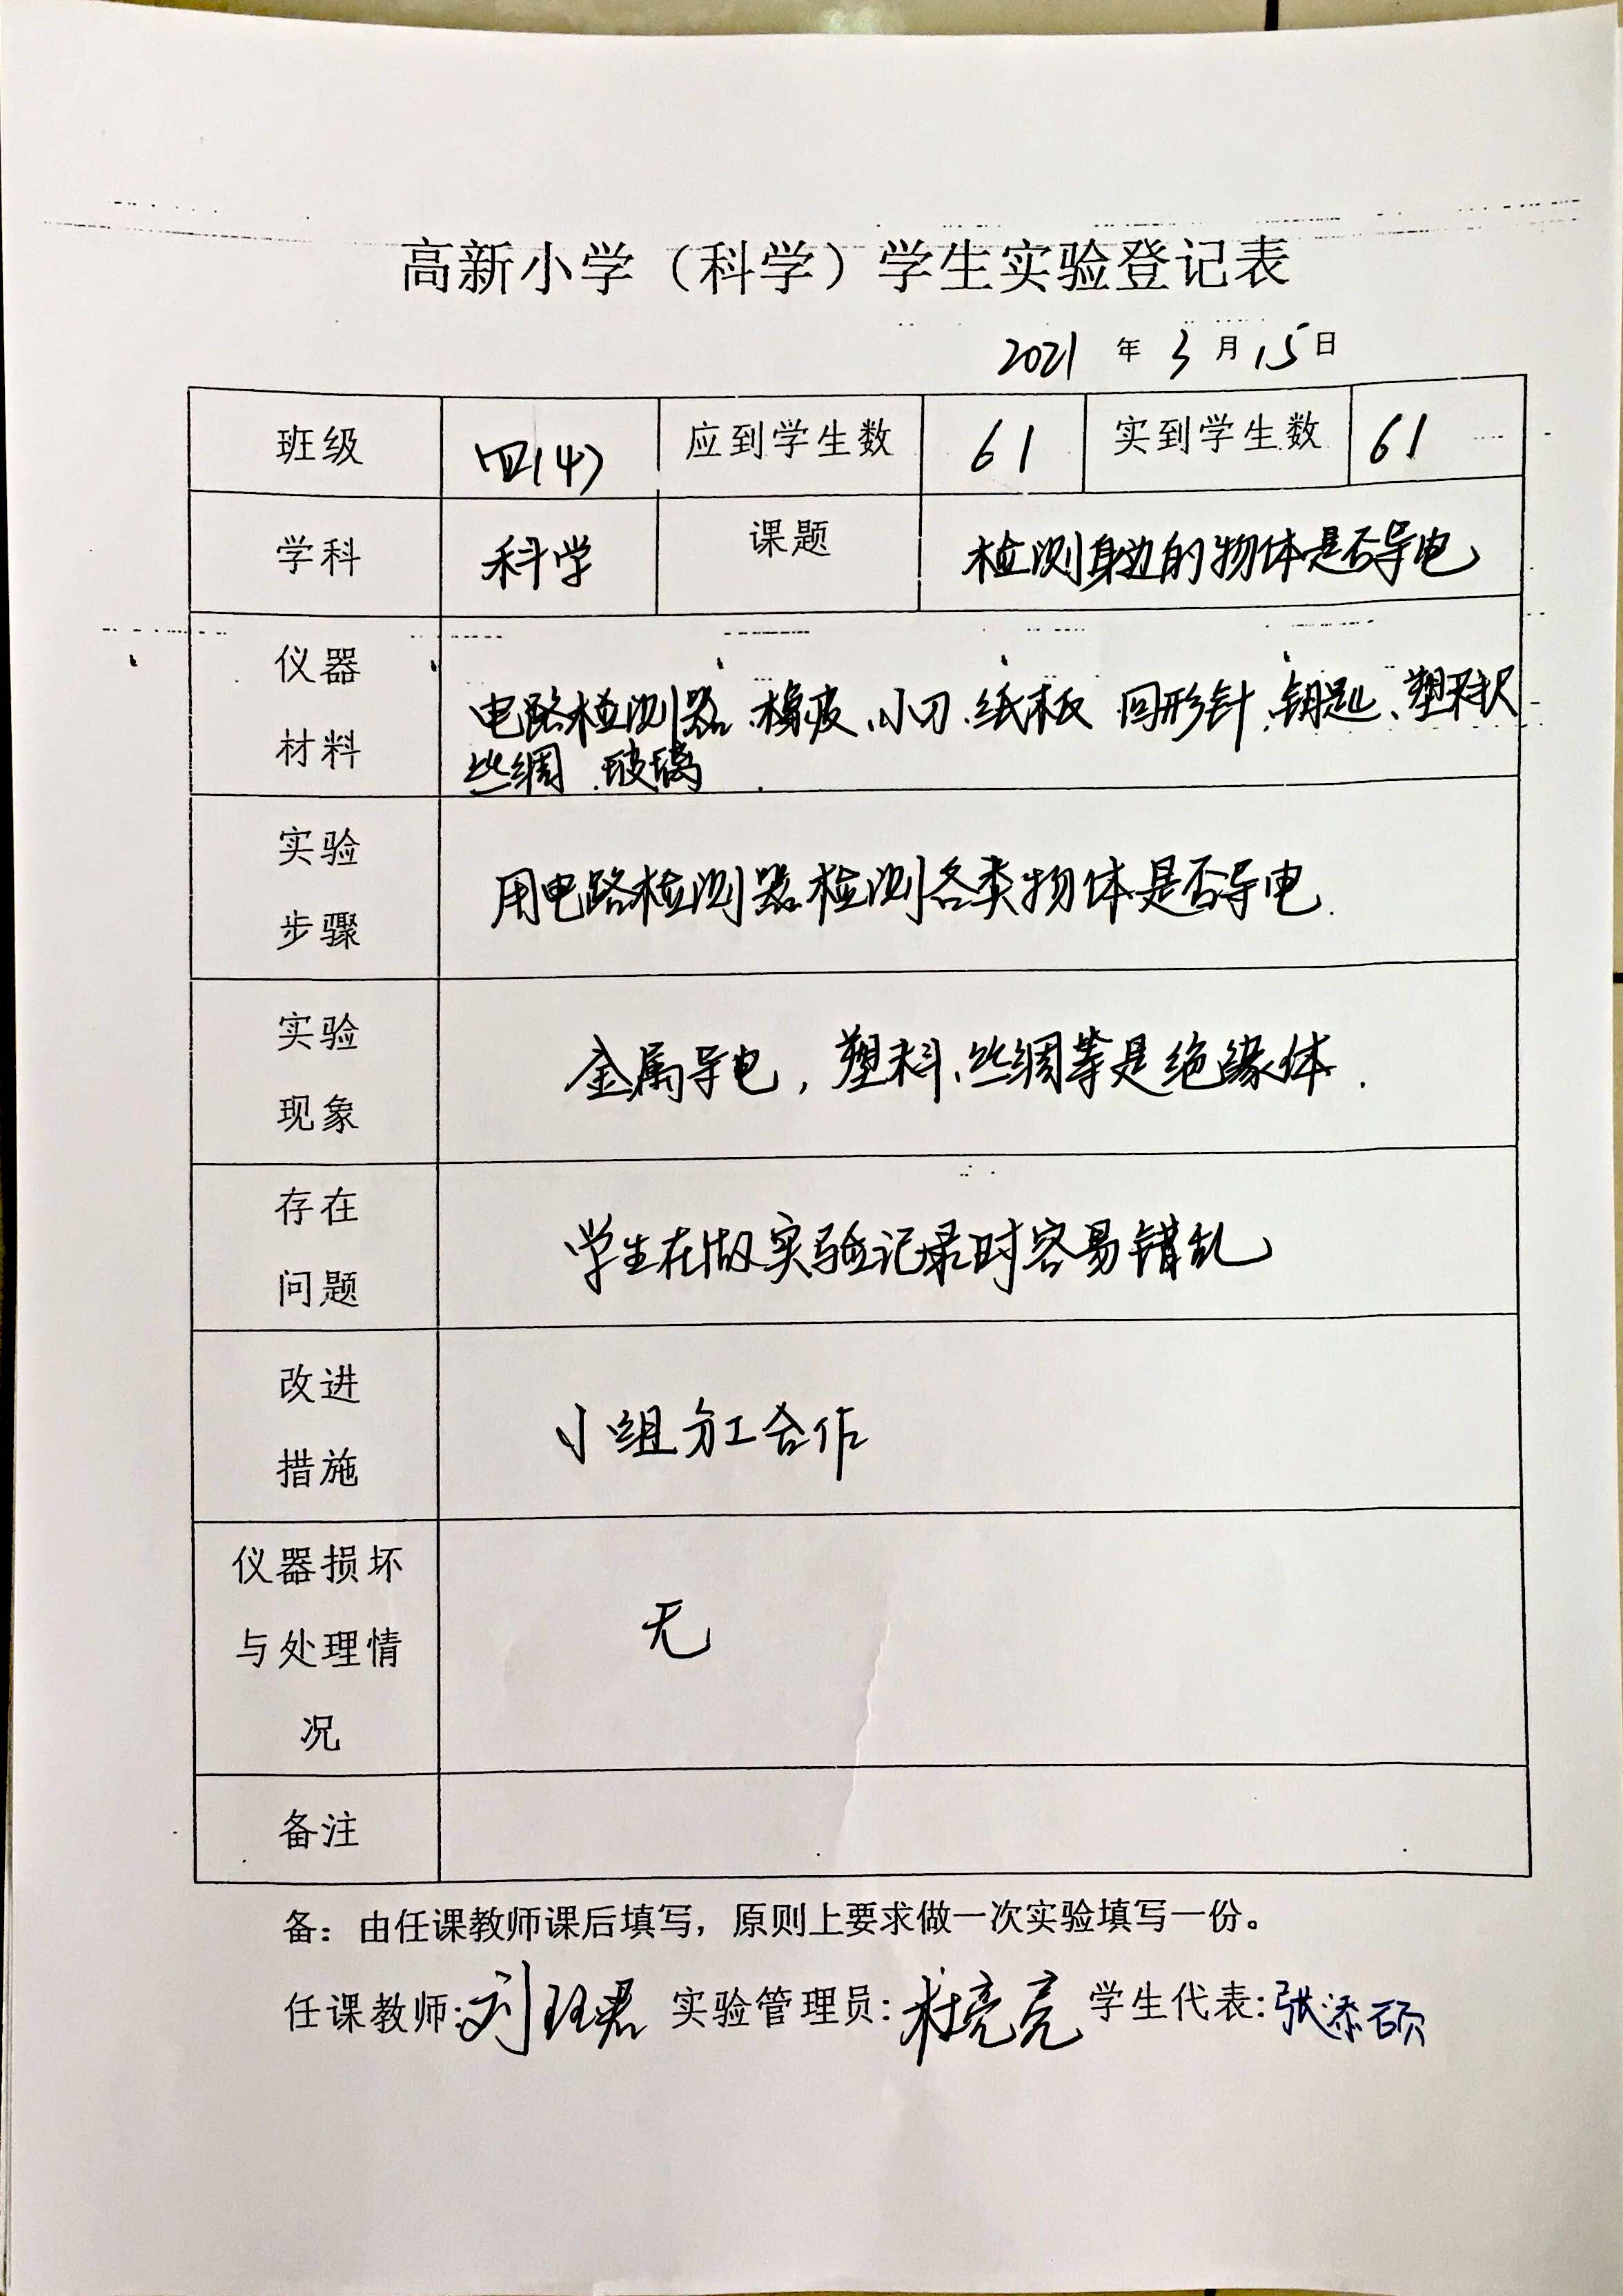 高新小学（科学）学生实验登记表
2021 年 3 月 15 日
班级 四(4) 应到学生数 61 实到学生数 61
学科 科学 课题 检测身边的物体是否导电
仪器
材料
电路检测器、橡皮、小刀、纸板 回形针、钥匙、塑料尺
丝绸、玻璃
实验
步骤
用电路检测器检测各类物体是否导电.
实验
现象
金属导电，塑料、丝绸等是绝缘体.
存在
问题
学生在做实验记录时容易错乱
改进
措施
小组分工合作
仪器损坏
与处理情
况
无
备注
备：由任课教师课后填写，原则上要求做一次实验填写一份。
任课教师:刘珏君 实验管理员:杜亮亮 学生代表:张添硕